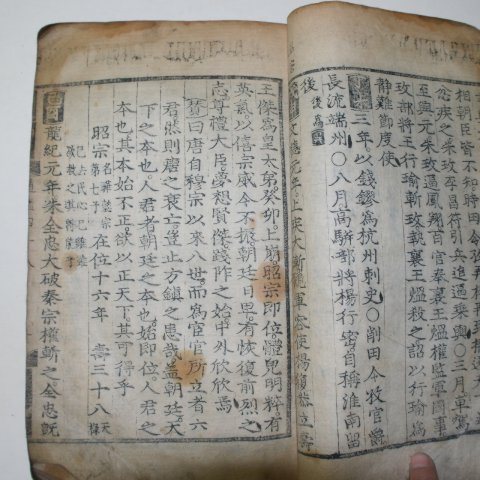 相朝臣皆不知時田令孜
忿疾之朱玫李昌符引兵追逼乘輿○三月車駕
至興元朱玫逼鳳翔百官奉襄王熅權監軍國事
玫部將王行瑜斬玫執襄王熅殺之詔以行瑜爲
靜難節度使
三年以錢鏐爲杭州刺史○削田令孜官爵
長流端州○八月高騈部將楊行密自稱淮南留
後
文德元年上疾大漸觀軍容使楊復恭立壽
王傑爲皇太弟癸卯上崩昭宗即位體皃明粹有
英氣以僖宗威令不振朝廷日卑有恢復前烈之
志尊禮大臣夢想賢傑踐阼之始中外欣欣焉
贊曰唐自穆宗以來八世而爲宦官所立者六
君然則唐之衰亡豈止方鎮之患哉盖朝廷天
下之本也人君者朝廷之本也始即位人君之
本也其本始不正欲以正天下其可得乎
昭宗 名曄懿宗第七子 在位十六年 壽三十八
龍紀元年朱全忠大破秦宗權斬之全忠旣